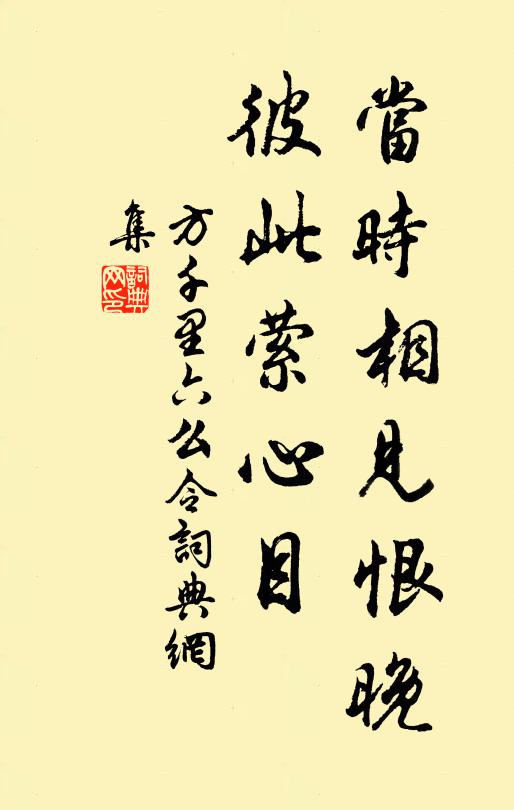 當時相見恨晚
彼此萦心目
方千里六公令詞典網
集
詞典
网印